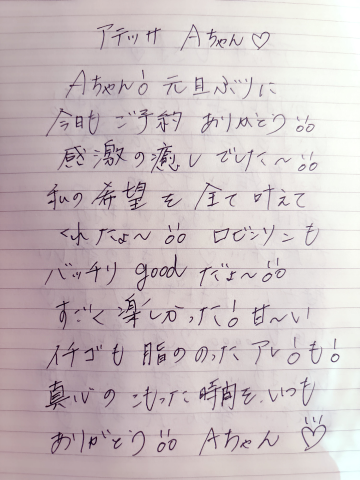 アテッサ Aちゃん♡
Aちゃん! 元旦ぶりに
今日も ご予約 ありがとう!!
感激の癒しでした〜!!
私の希望を全て叶えて
くれたょ〜!! ロビンソンも
バッチリ good だょ〜!!
すごく楽しかった! 甘〜い
イチゴも 脂ののったアレ!も!
真心のこもった時間を、いつも
ありがとう!! Aちゃん ♡